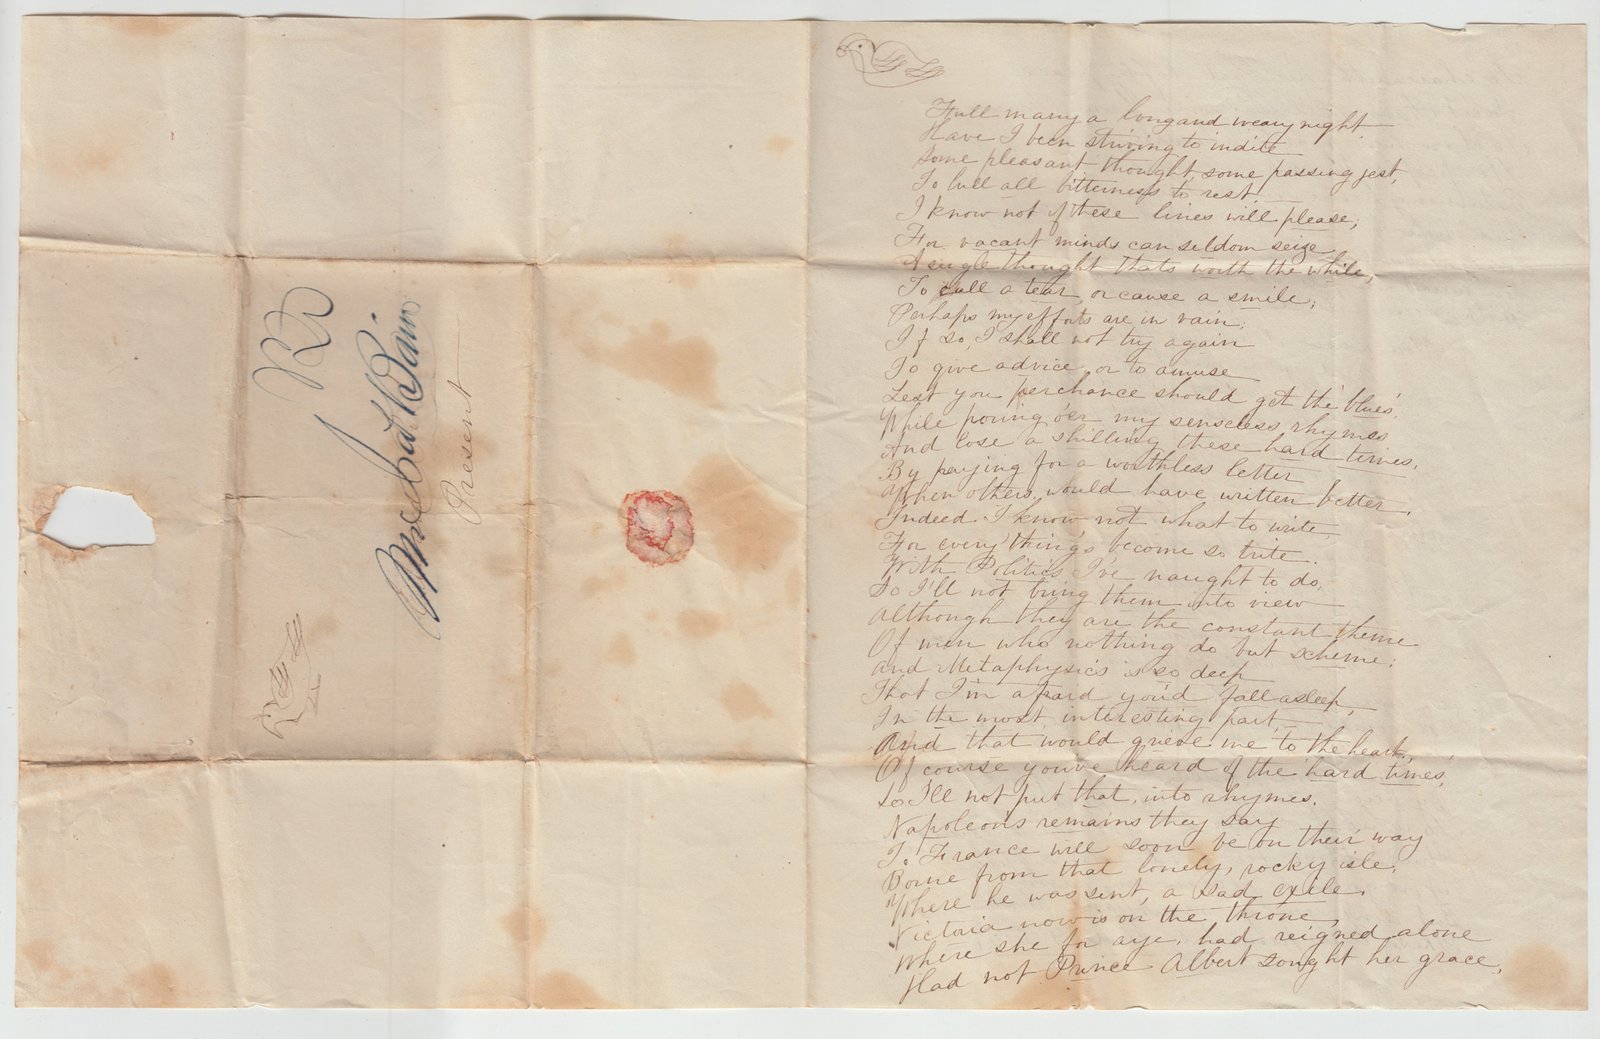 Full many a long and weary night
Have I been striving to indite
Some pleasant thought, some passing jest,
To lull all bitterness to rest
I know not if these lines will please,
For vacant minds can seldom seize
A single thought thats worth the while,
To call a tear, or cause a smile;
Perhaps my efforts are in vain;
If so, I shall not try again
To give advice, or to amuse
Lest you perchance should get the 'blues'
While poring o'er my senseless rhymes
And lose a shilling these hard times,
By paying for a worthless letter
When others, would have written better.
Indeed I know not what to write,
For every thing's become so trite.
With Politics I've naught to do,
So I'll not bring them into view
Although they are the constant theme
Of men who nothing do but scheme;
And Metaphysics is so deep
That I'm afraid you'd fall asleep,
In the most interesting part,
And that would grieve me to the heart,
Of course you've heard of the hard times,
So I'll not put that, into rhymes.
Napoleon's remains they say
To France will soon be on their way
Borne from that lonely, rocky isle,
Where he was sent, a sad exile.
Victoria now is on the throne,
Where she for aye, had reigned alone
Had not Prince Albert sought her grace,
Present